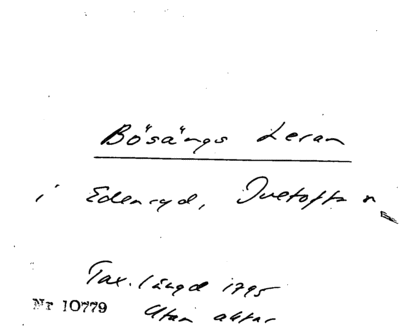 Bösängs Leran
i Edenryd, Ivetofta n
Tax. längd 1795
Nr 10779 Utan aktnr